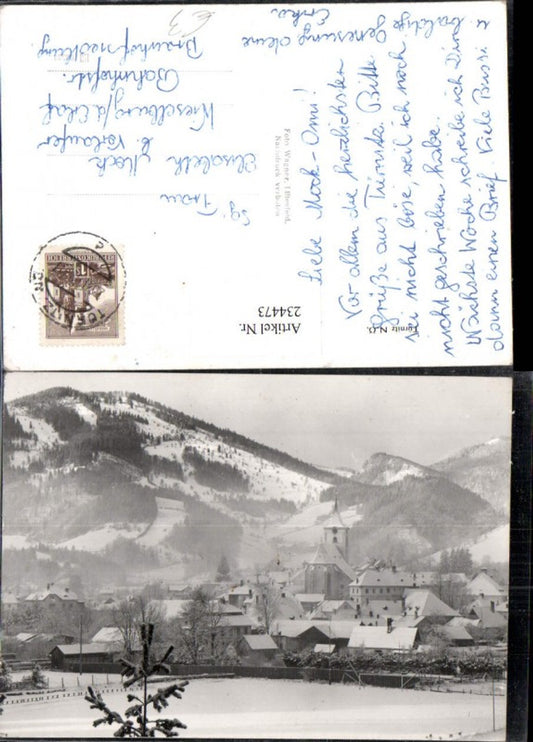 Liebe Mock-Omi!
Vor allem die herzlichsten
Grüße aus Türnitz. Bitte
sei nicht böse, weil ich noch
nicht geschrieben habe.
Nächste Woche schreibe ich Dir
dann einen Brief. Viele Bussi u
baldige Genesung deine
Erika
Türnitz N.Ö.
Foto Wagner, Lilienfeld,
Nachdruck verboten
Artikel Nr.
234473
Frau
Elisabeth Mock
b. Vorlaufer
Wieselburg/d. Erlaf
Bahnhofstr.
Brauhofsiedlung
€3